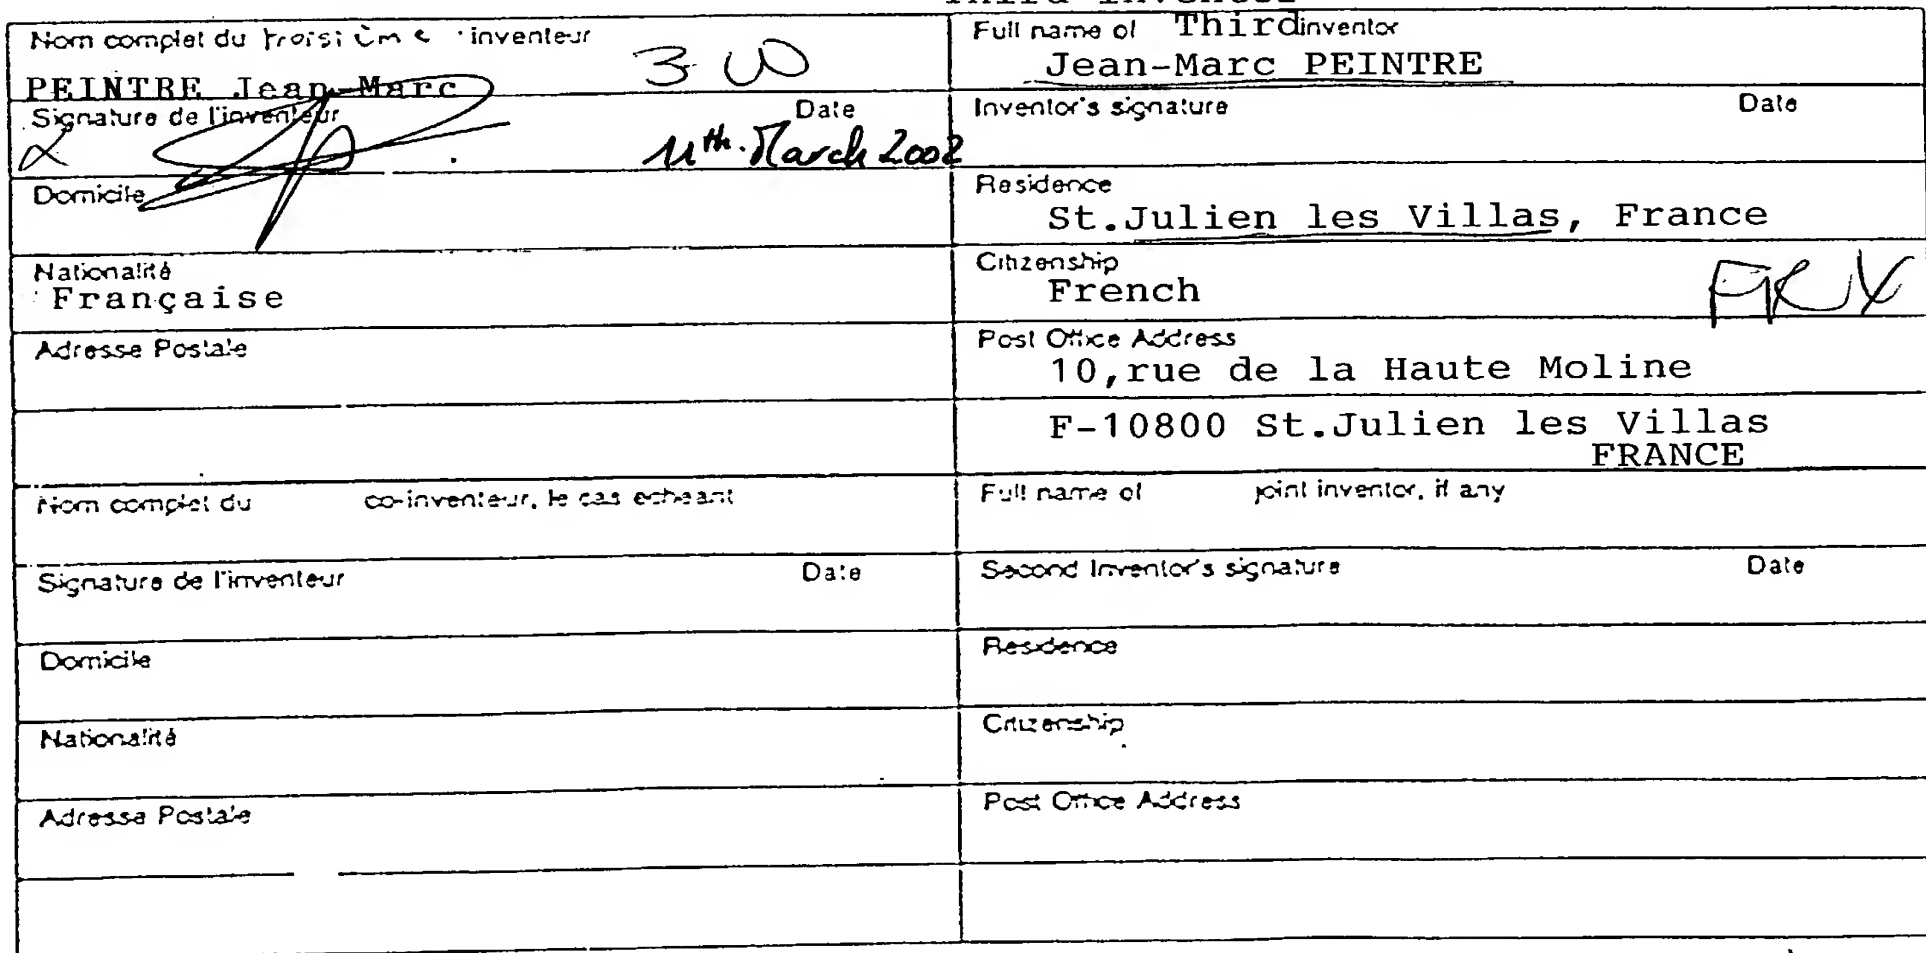 Third Inventor
Nom complet du troisième inventeur
3-00
PEINTRE Jean-Marc
Full name of Third inventor
Jean-Marc PEINTRE
Signature de l'inventeur Date
11th. March 2002
Inventor's signature Date
Domicile
Residence
St.Julien les Villas, France
Nationalité
Française
Citizenship
French
FRX
Adresse Postale
Post Office Address
10,rue de la Haute Moline
F-10800 St.Julien les Villas
FRANCE
Nom complet du co-inventeur, le cas echeant
Full name of joint inventor, if any
Signature de l'inventeur Date
Second Inventor's signature Date
Domicile
Residence
Nationalité
Citizenship
Adresse Postale
Post Office Address